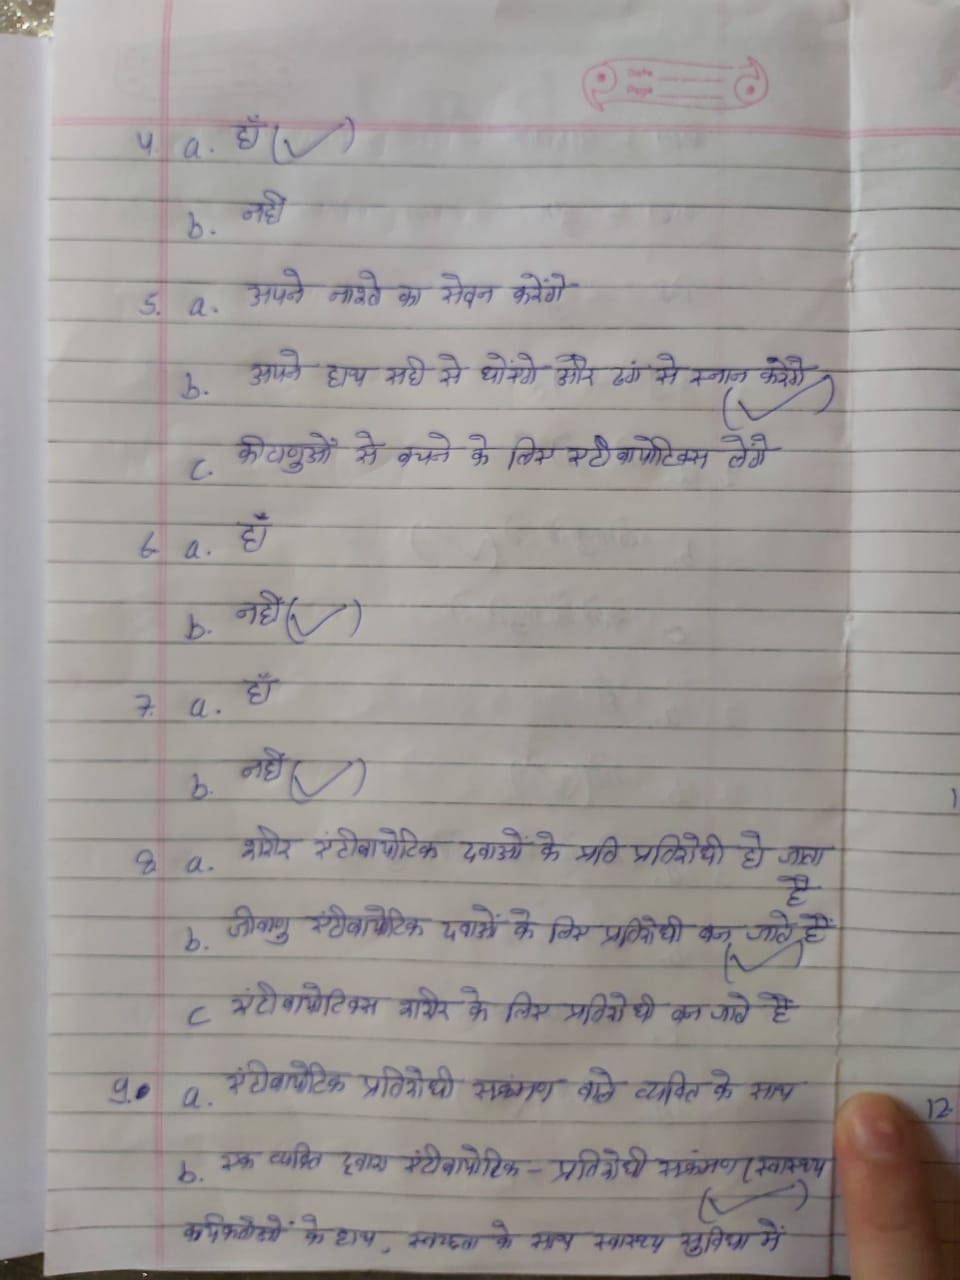 Date
Page
4. a. हाँ (✓)
b. नही
5. a. अपने नाश्ते का सेवन करेंगे
b. अपने हाथ सही से धोंएगे और ढंग से स्नान करेंगे
(✓)
c. कीटाणुओं से बचने के लिए एंटीबायोटिक्स लेंगे
6. a. हाँ
b. नही (✓)
7. a. हाँ
b. नही (✓)
8. a. शरीर एंटीबायोटिक दवाओं के प्रति प्रतिरोधी हो जाता
है
b. जीवाणु एंटीबायोटिक दवाओं के लिए प्रतिरोधी बन जाते हैं
(✓)
c एंटीबायोटिक्स शरीर के लिए प्रतिरोधी बन जाते है
9. a. एंटीबायोटिक प्रतिरोधी सक्रंमण वाले व्यक्ति के साथ
12.
b. एक व्यक्ति द्वारा एंटीबायोटिक - प्रतिरोधी सक्रंमण (स्वास्थ्य
(✓)
के हाथ, स्वच्छता के साथ स्वास्थ्य सुविधा में